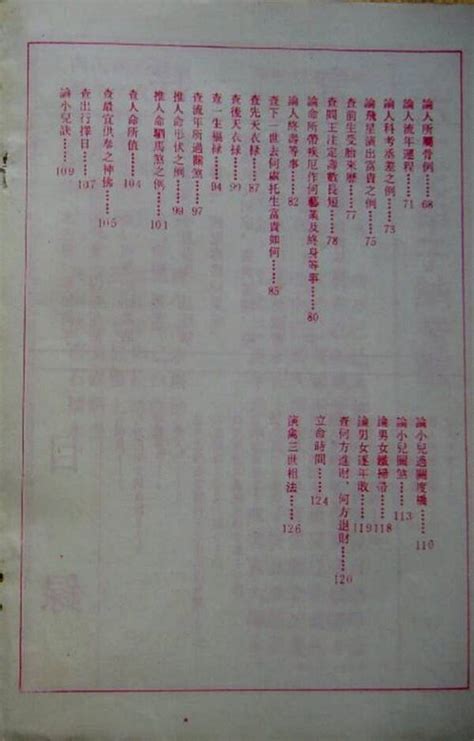 論人所屬骨例……68
論人流年運程……71
論人科考丞差之例……73
論飛星演出富貴之例……75
查前生受胎來歷……77
查閻王注定壽數長短……78
論命所帶疾厄作何藝業及終身等事……80
論人終壽等事……82
查下一世去何處托生富貴如何……85
查先天衣禄……87
查後天衣禄……90
查一生福禄……94
查流年所過關煞……97
推人命形伏之例……99
推人命驛馬煞之例……101
查人命所值……104
查最宜供奉之神佛……105
查出行擇日……107
論小兒訣……109
論小兒過關度磯……110
論小兒關煞……113
論男女鐵掃帶……118
論男女逐年敗……119
查何方進財、何方退財……120
立命時間……124
演禽三世相法……126